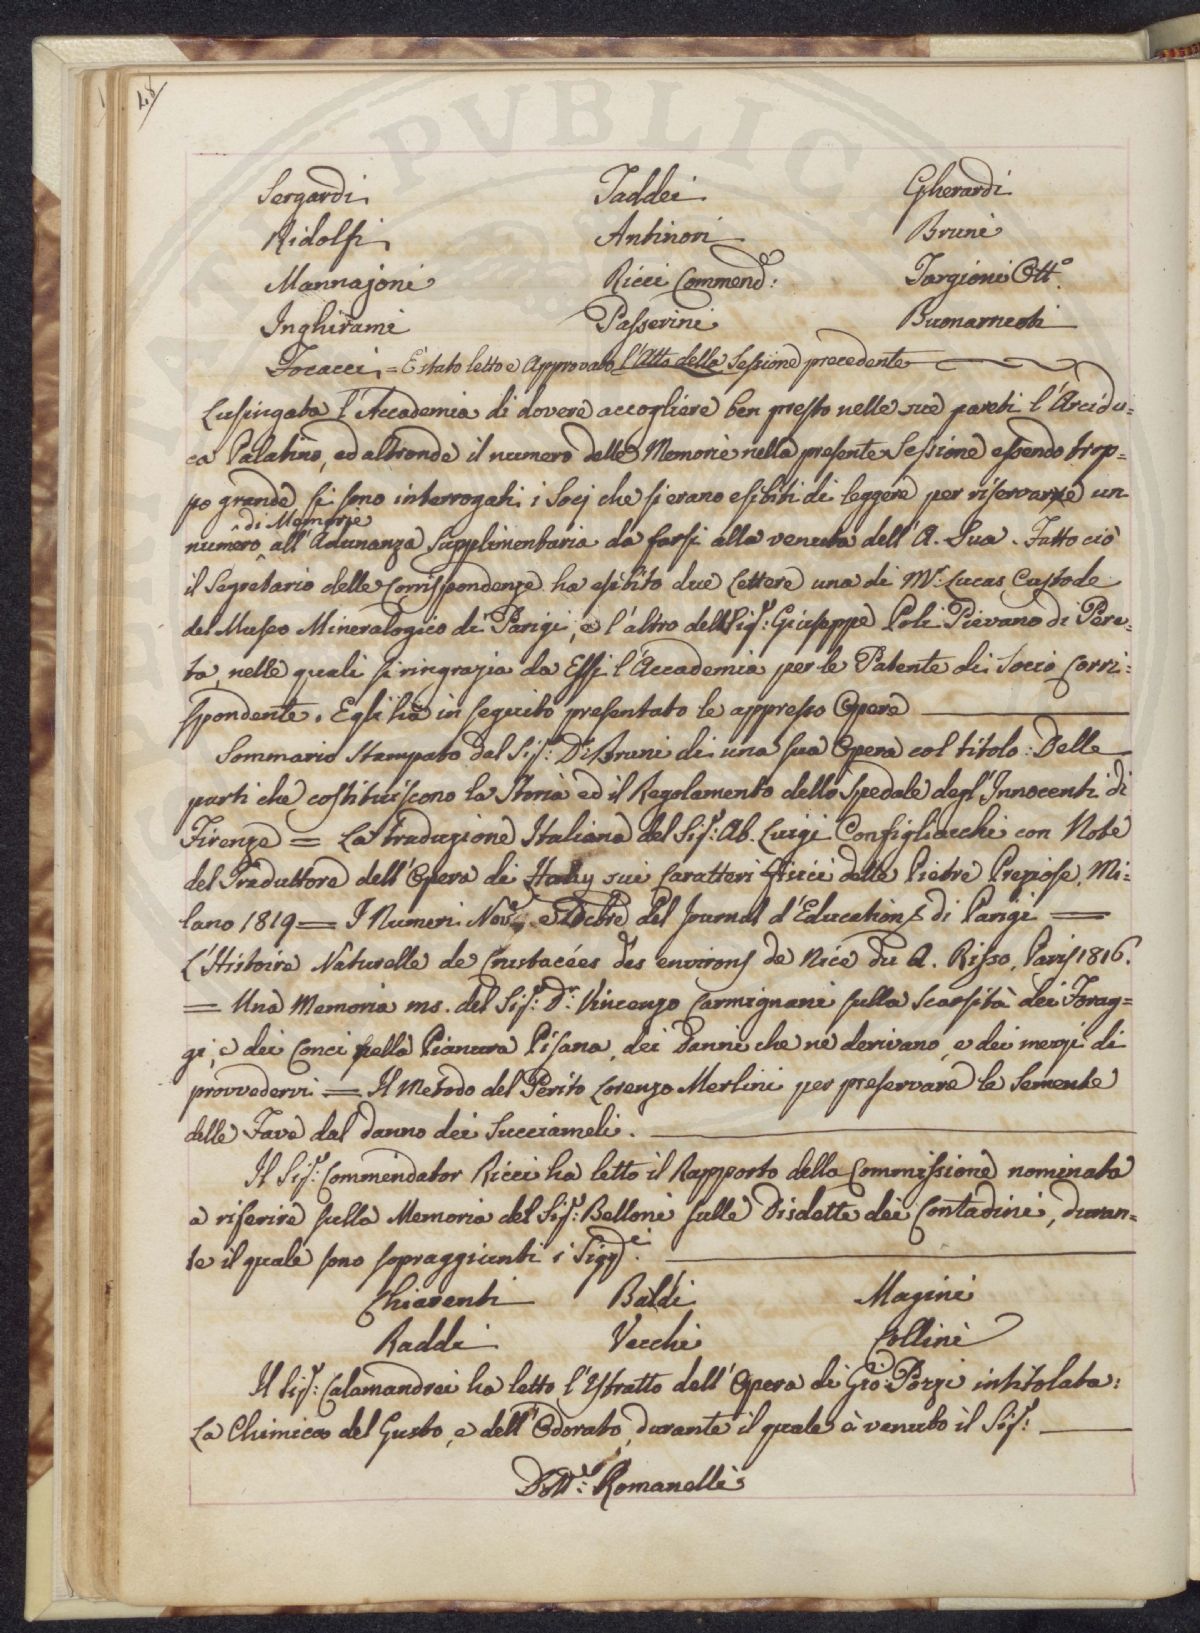 48
PUBLIC
Sergardi Taddei Gherardi
Ridolfi Antinori Bruni
Mannajoni Ricci Commend.e: Targioni Ott.o
Inghirami Passerini Buonarroti
Focacci = È stato letto e Approvato l'Atto della Sessione precedente
Lusingata l'Accademia di dovere accogliere ben presto nelle sue pareti l'Arcidu=
ca Palatino, ed altronde il numero delle Memorie nella presente Sessione essendo trop=
po grande si sono interrogati i Socj che si erano esibiti di leggere per riservarne un
di Memorie
numero all'Adunanza Supplimentaria da farsi alla venuta dell'A. Sua. Fatto ciò
il Segretario delle Corrispondenze ha esibito due Lettere una di Mr. Lucas Custode
del Museo Mineralogico di Parigi, e l'altro del Sig.r: Giuseppe Poli Pievano di Pere=
ta, nelle quali si ringrazia da Essi l'Accademia per le Patente di Socio Corri=
spondente. Egli ha in seguito presentato le appresso Opere
Sommario stampato del Sig.r: D. Bruni di una sua Opera col titolo: Delle
parti che costituiscono la Storia ed il Regolamento dello Spedale degl'Innocenti di
Firenze = La traduzione Italiana del Sig.r: Ab. Luigi Configliacchi con Note
del Traduttore dell'Opera di Haüy sui Caratteri fisici delle Pietre Preziose, Mi=
lano 1819 = I Numeri Nov.e e Xcbre del Journal d'Education di Parigi =
L'Histoire Naturelle de Crustacées des environs de Nice du A. Risso, Paris 1816.
= Una Memoria ms. del Sig.r: D.r Vincenzo Carmignani sulla scarsità dei Forag=
gi, e dei Conci nella Pianura Pisana, dei Danni che ne derivano, e dei mezzi di
provvedervi = Il Metodo del Perito Lorenzo Merlini per preservare la Semente
delle Fave dal danno dei Succiameli.
Il Sig.r: Commendator Ricci ha letto il Rapporto della Commissione nominata
a riferire sulla Memoria del Sig.r: Belloni sulle Disdette dei Contadini, duran=
te il quale sono sopraggiunti i Sigg.ri:
Chiarenti Baldi Magini
Raddi Vecchi Collini
Il Sig.r: Calamandrei ha letto l'Estratto dell'Opera di Gio: Pozzi intitolata:
La Chimica del Gusto, e dell'Odorato, durante il quale è venuto il Sig.r:
Dott.e: Romanelli